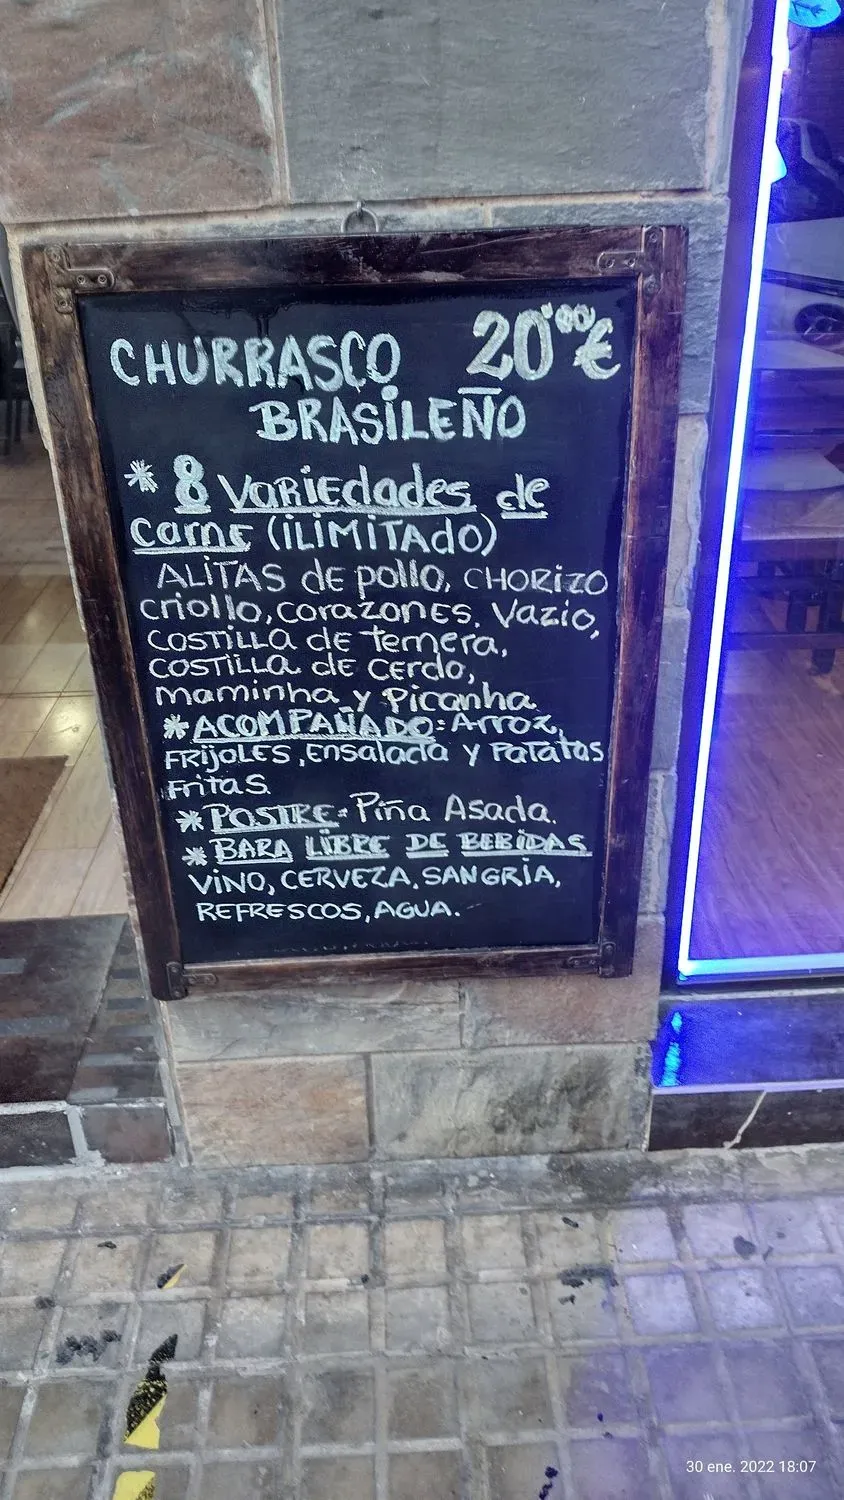 CHURRASCO 20'00€
BRASILEÑO
* 8 VARiEdAdES de
CARNE (iLiMiTAdO)
ALiTAS dE pollo, CHORizo
criollo, corazonEs, Vazio,
COSTiLLA dE TERNERA,
COSTiLLA dE CERdo,
Maminha y Picanha
*ACOMPAÑADO: Arroz,
FRijoLES, Ensalada y PaTaTas
FriTas.
*POSTRE: Piña Asada.
*BARA LIBRE DE BEBIDAS
ViNO, CERVEZA, SANGRÍA,
REFRESCOS, AGUA.
30 ene. 2022 18:07